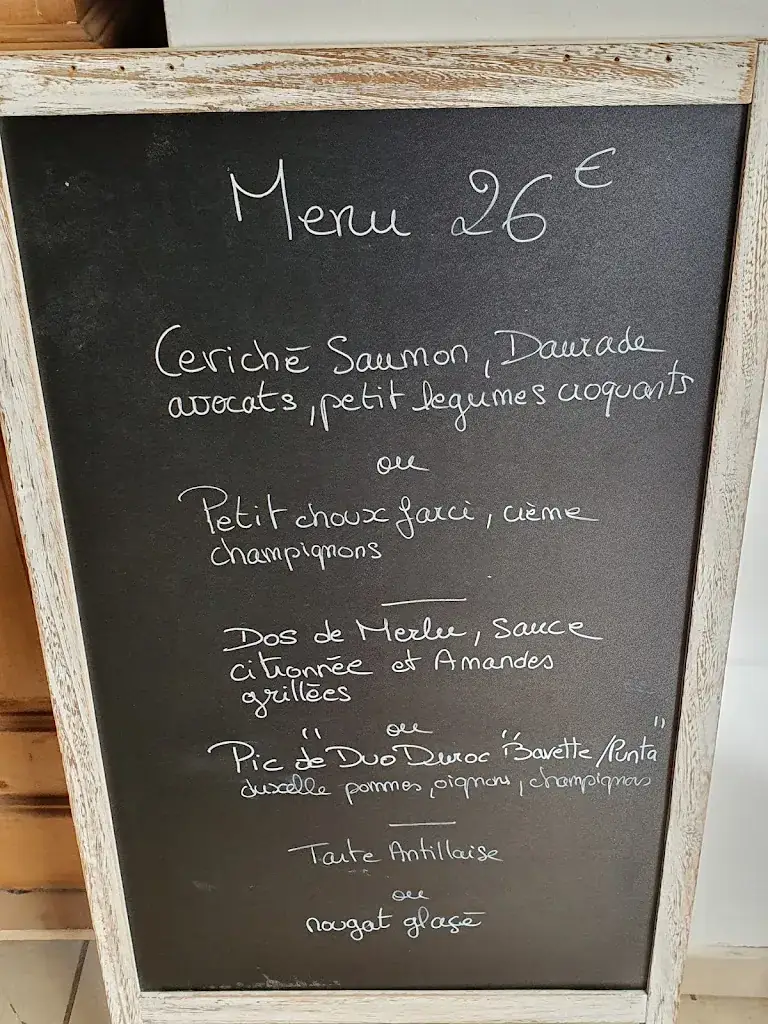 Menu 26 €
Ceviché Saumon, Daurade
avocats, petit legumes croquants
ou
Petit choux farci, crème
champignons
Dos de Merlu, sauce
citronnée et Amandes
grillées
ou
Pic de "Duo Duroc "Bavette/Punta"
duxelle pommes, oignons, champignons
Tarte Antillaise
ou
nougat glaçé